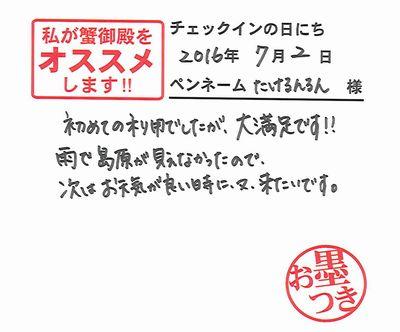 私が蟹御殿を
オススメ
します!!
チェックインの日にち
2016年 7月 2日
ペンネーム たけるんるん 様
初めての利用でしたが、大満足です!!
雨で島原が見えなかったので、
次はお天気が良い時に、又、来たいです。
お墨つき